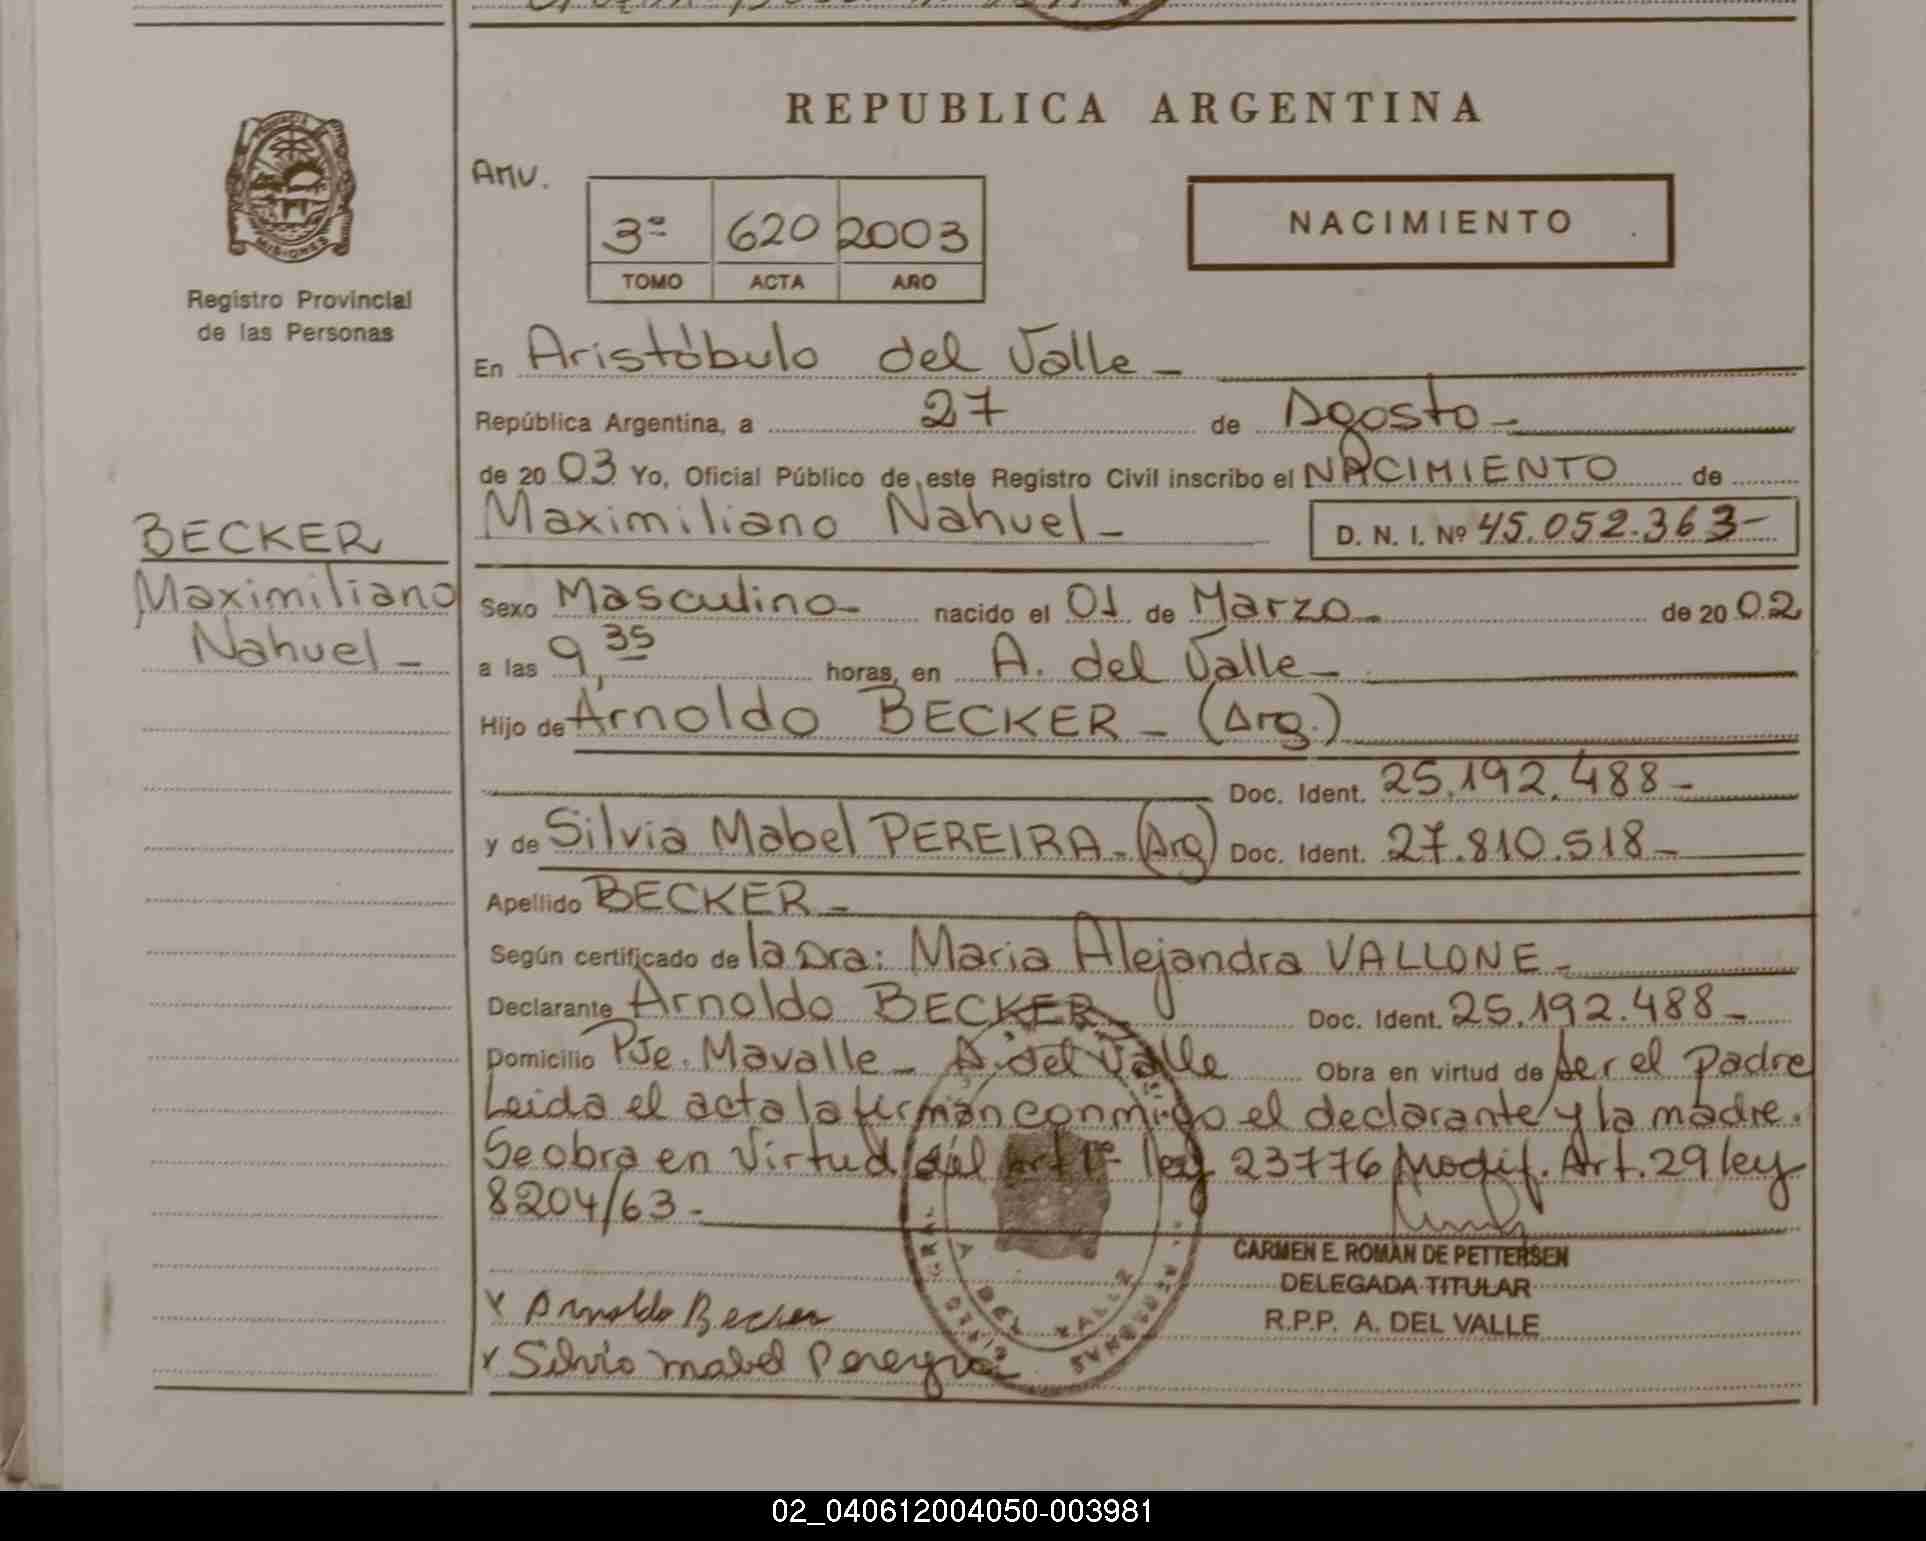 REPUBLICA ARGENTINA
AMU.
3º 620 2003
TOMO ACTA AÑO
NACIMIENTO
MISIONES
Registro Provincial
de las Personas
En Aristóbulo del Valle -
República Argentina, a 27 de Agosto -
de 20 03 Yo, Oficial Público de este Registro Civil inscribo el NACIMIENTO de
Maximiliano Nahuel - D. N. I. Nº 45.052.363-
BECKER
Maximiliano
Nahuel -
Sexo Masculino - nacido el 01 de Marzo - de 20 02
a las 9,35 horas, en A. del Valle -
Hijo de Arnoldo BECKER - (Arg.)
Doc. Ident. 25.192.488 -
y de Silvia Mabel PEREIRA - (Arg) Doc. Ident. 27.810.518 -
Apellido BECKER -
Según certificado de la Dra: Maria Alejandra VALLONE -
Declarante Arnoldo BECKER - Doc. Ident. 25.192.488 -
Domicilio Pje. Mavalle - A. del Valle Obra en virtud de ser el padre
Leida el acta la firman conmigo el declarante y la madre.
Se obra en Virtud del art 1º ley 23776 Modif. Art. 29 ley
8204/63 -
CARMEN E. ROMAN DE PETTERSEN
DELEGADA TITULAR
R.P.P. A. DEL VALLE
x Arnoldo Becker
x Silvia mabel Pereyra
A. DEL VALLE
02_040612004050-003981